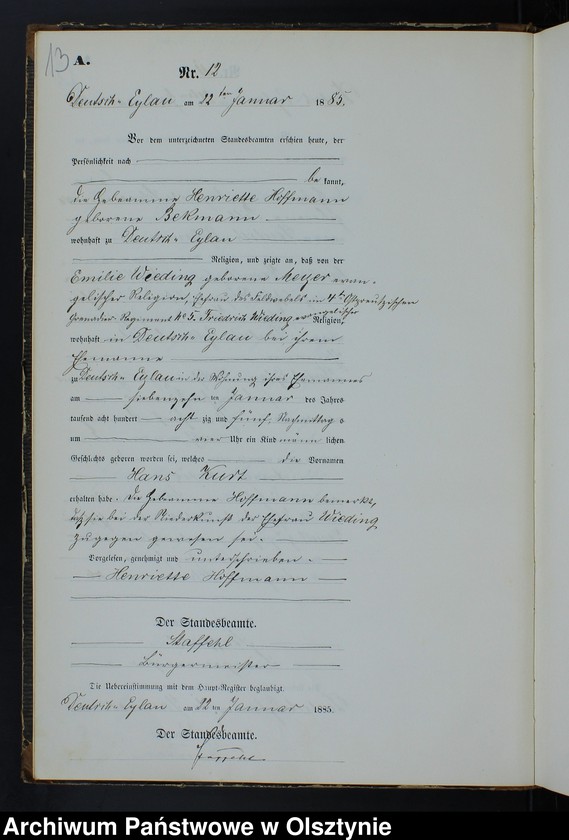 13
A.
Nr. 12
Deutsch-Eylau am 22ten Januar 1885.
Vor dem unterzeichneten Standesbeamten erschien heute, der
Persönlichkeit nach
be kannt,
die Hebeamme Henriette Hoffmann
geborene Bekmann
wohnhaft zu Deutsch-Eylau
Religion, und zeigte an, daß von der
Emilie Wieding geborene Meyer evan-
gelischer Religion, Ehefrau des Feldwebels im 4ten Ostpreußischen
Grenadier Regiment No 5. Friedrich Wieding evangelischer
Religion,
wohnhaft in Deutsch-Eylau bei ihrem
Ehemanne
zu Deutsch-Eylau in der Wohnung ihres Ehemannes
am siebenzehnten Januar des Jahres
tausend acht hundert acht zig und fünf, Nachmittags
um vier Uhr ein Kind männ lichen
Geschlechts geboren worden sei, welches die Vornamen
Hans Kurt
erhalten habe. Die Hebeamme Hoffmann bemerkte,
daß sie bei der Niederkunft der Ehefrau Wieding
zugegen gewesen sei.
Vorgelesen, genehmigt und unterschrieben.
Henriette Hoffmann
Der Standesbeamte.
Staffehl
Bürgermeister
Die Uebereinstimmung mit dem Haupt-Register beglaubigt.
Deutsch-Eylau am 22ten Januar 1885.
Der Standesbeamte.
Archiwum Państwowe w Olsztynie